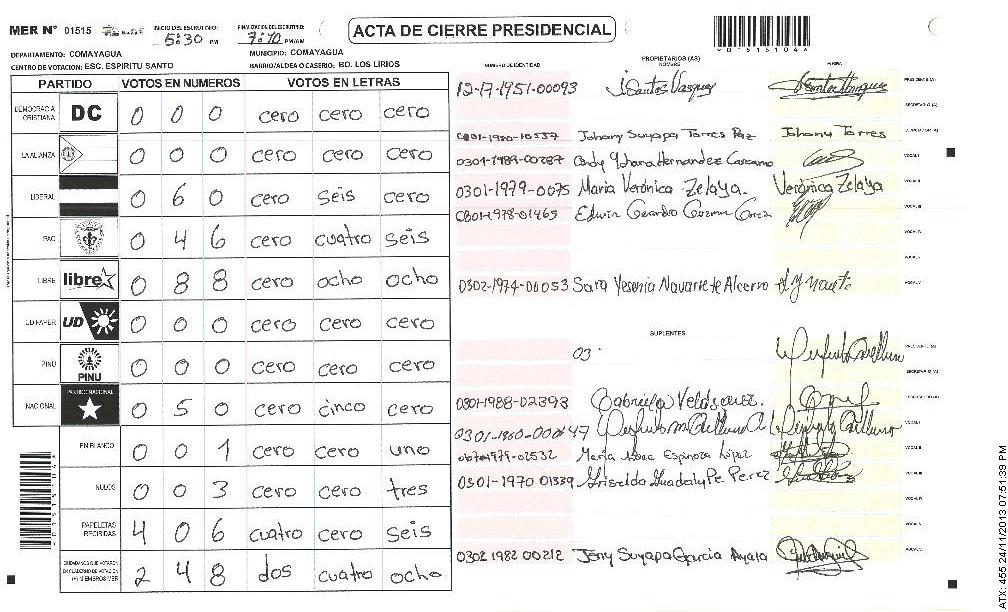 MER N° 01515
INICIO DEL ESCRUTINIO: 5:30 PM
FINALIZACION DEL ESCRUTINIO: 7:10 PM/AM
ACTA DE CIERRE PRESIDENCIAL
DEPARTAMENTO: COMAYAGUA MUNICIPIO: COMAYAGUA
CENTRO DE VOTACION: ESC. ESPIRITU SANTO BARRIO/ALDEA O CASERIO: BO. LOS LIRIOS
PARTIDO VOTOS EN NUMEROS VOTOS EN LETRAS
DEMOCRACIA CRISTIANA DC 0 0 0 cero cero cero
LA ALIANZA 0 0 0 cero cero cero
LIBERAL 0 6 0 cero seis cero
PAC 0 4 6 cero cuatro seis
LIBRE libre 0 8 8 cero ocho ocho
UD FAPER UD 0 0 0 cero cero cero
PINU PINU 0 0 0 cero cero cero
NACIONAL PARTIDO NACIONAL 0 5 0 cero cinco cero
EN BLANCO 0 0 1 cero cero uno
NULOS 0 0 3 cero cero tres
PAPELETAS RECIBIDAS 4 0 6 cuatro cero seis
CIUDADANOS QUE VOTARON EN CUADERNO DE VOTACION (+) MIEMBROS MER 2 4 8 dos cuatro ocho
NUMERO DE IDENTIDAD PROPIETARIOS (AS) NOMBRE FIRMA
12-17-1951-00093 J Santos Vasquez PRESIDENTE (A)
SECRETARIO (A)
Johany Suyapa Torres Paz Johany Torres
0301-1989-00287 Hernandez VOCAL I
0301-1979-0075 Maria Verónica Zelaya. Verónica Zelaya VOCAL II
0301-1978-01465 Edwin Gerardo Guzman VOCAL III
VOCAL IV
0302-1974-00053 Sara Yesenia Navarrete VOCAL V
SUPLENTES
03- PRESIDENTE (A)
SECRETARIO (A)
0301-1988-02393 Gabriela Velásquez.
0301-1960-00047 VOCAL I
1979-02532 María Espinoza López VOCAL II
0301-1970 01339 Griselda Guadalupe Perez VOCAL III
VOCAL IV
0302 1982 00212 Jeny Suyapa Garcia VOCAL V
ATX: 455 24/11/2013 07:51:39 PM